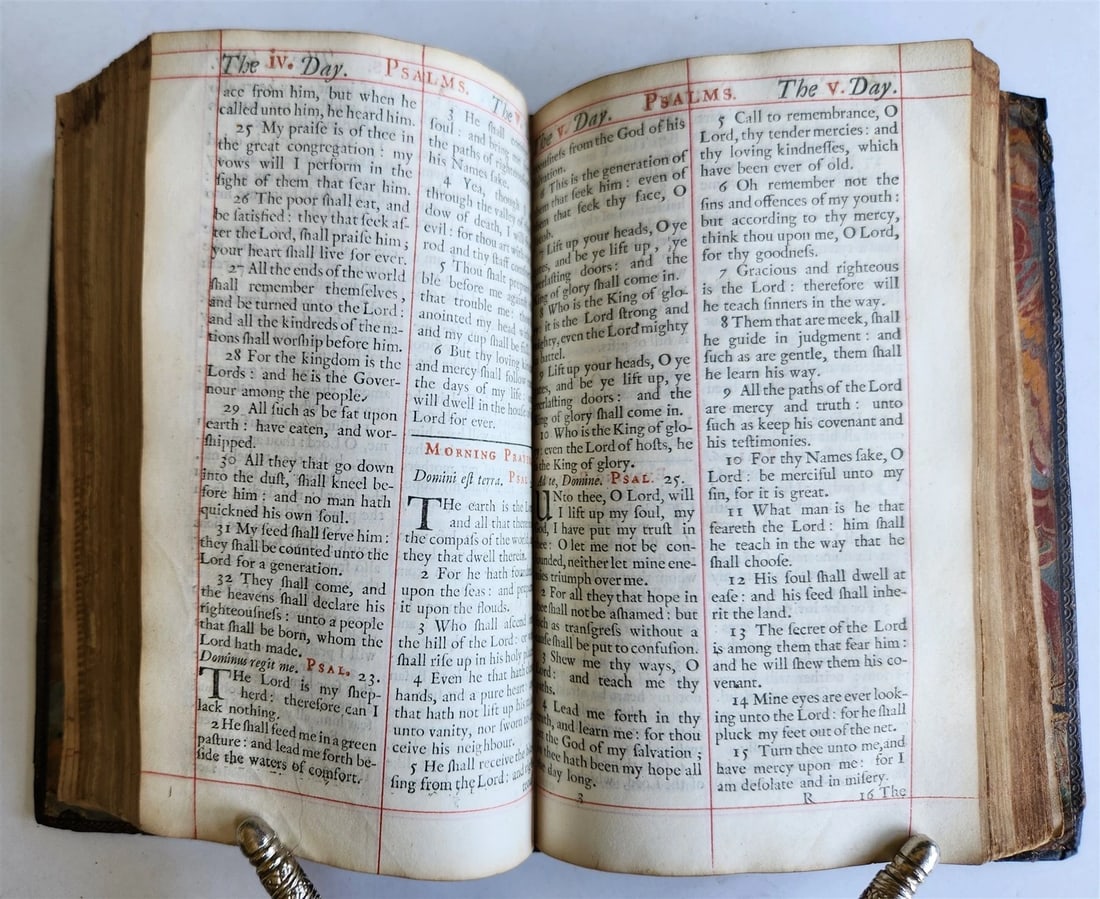 The iv. Day. PSALMS. The
ace from him, but when he
called unto him, he heard him.
25 My praiſe is of thee in
the great congregation : my
vows will I perform in the
ſight of them that fear him.
26 The poor ſhall eat, and
be ſatisfied : they that ſeek af-
ter the Lord, ſhall praiſe him ;
your heart ſhall live for ever.
27 All the ends of the world
ſhall remember themſelves,
and be turned unto the Lord :
and all the kindreds of the na-
tions ſhall worſhip before him.
28 For the kingdom is the
Lords : and he is the Gover-
nour among the people.
29 All ſuch as be fat upon
earth : have eaten, and wor-
ſhipped.
30 All they that go down
into the duſt, ſhall kneel be-
fore him : and no man hath
quickned his own ſoul.
31 My ſeed ſhall ſerve him :
they ſhall be counted unto the
Lord for a generation.
32 They ſhall come, and
the heavens ſhall declare his
righteouſneſs : unto a people
that ſhall be born, whom the
Lord hath made.
Dominus regit me. PSAL. 23.
THe Lord is my ſhep-
herd : therefore can I
lack nothing.
2 He ſhall feed me in a green
paſture : and lead me forth be-
ſide the waters of comfort.
3 He ſhall
ſoul : and bring
the paths of
his Names ſake.
4 Yea, though
through the valley
dow of death, I
evil : for thou art
rod and thy ſtaff
5 Thou ſhalt
ble before me
that trouble me :
anointed my head
and my cup ſhall be
6 But thy loving
and mercy ſhall follow
the days of my life
will dwell in the houſe
Lord for ever.
MORNING
Domini eſt terra.
THe earth is the
and all that
the compaſs of the
they that dwell therein.
2 For he hath
upon the ſeas : and
it upon the flouds.
3 Who ſhall aſcend
the hill of the Lord : or
ſhall riſe up in his holy
4 Even he that hath
hands, and a pure heart
that hath not lift up his
unto vanity, nor ſworn
ceive his neighbour.
5 He ſhall receive the
ſing from the Lord : and
The v. Day. PSALMS. The v. Day.
from the God of his
This is the generation of
that ſeek him : even of
that ſeek thy face, O
Lift up your heads, O ye
and be ye lift up, ye
doors : and the
of glory ſhall come in.
8 Who is the King of glo-
it is the Lord ſtrong and
even the Lord mighty
battel.
Lift up your heads, O ye
and be ye lift up, ye
doors : and the
of glory ſhall come in.
10 Who is the King of glo-
even the Lord of hoſts, he
the King of glory.
te, Domine. PSAL. 25.
UNto thee, O Lord, will
I lift up my ſoul, my
I have put my truſt in
O let me not be con-
neither let mine ene-
triumph over me.
2 For all they that hope in
ſhall not be aſhamed : but
as tranſgreſs without a
ſhall be put to confuſion.
3 Shew me thy ways, O
and teach me thy
4 Lead me forth in thy
and learn me : for thou
the God of my ſalvation ;
thee hath been my hope all
day long.
3
5 Call to remembrance, O
Lord, thy tender mercies : and
thy loving kindneſſes, which
have been ever of old.
6 Oh remember not the
ſins and offences of my youth :
but according to thy mercy,
think thou upon me, O Lord,
for thy goodneſs.
7 Gracious and righteous
is the Lord : therefore will
he teach ſinners in the way.
8 Them that are meek, ſhall
he guide in judgment : and
ſuch as are gentle, them ſhall
he learn his way.
9 All the paths of the Lord
are mercy and truth : unto
ſuch as keep his covenant and
his teſtimonies.
10 For thy Names ſake, O
Lord : be merciful unto my
ſin, for it is great.
11 What man is he that
feareth the Lord : him ſhall
he teach in the way that he
ſhall chooſe.
12 His ſoul ſhall dwell at
eaſe : and his ſeed ſhall inhe-
rit the land.
13 The ſecret of the Lord
is among them that fear him :
and he will ſhew them his co-
venant.
14 Mine eyes are ever look-
ing unto the Lord : for he ſhall
pluck my feet out of the net.
15 Turn thee unto me, and
have mercy upon me : for I
am deſolate and in miſery.
R 16 The